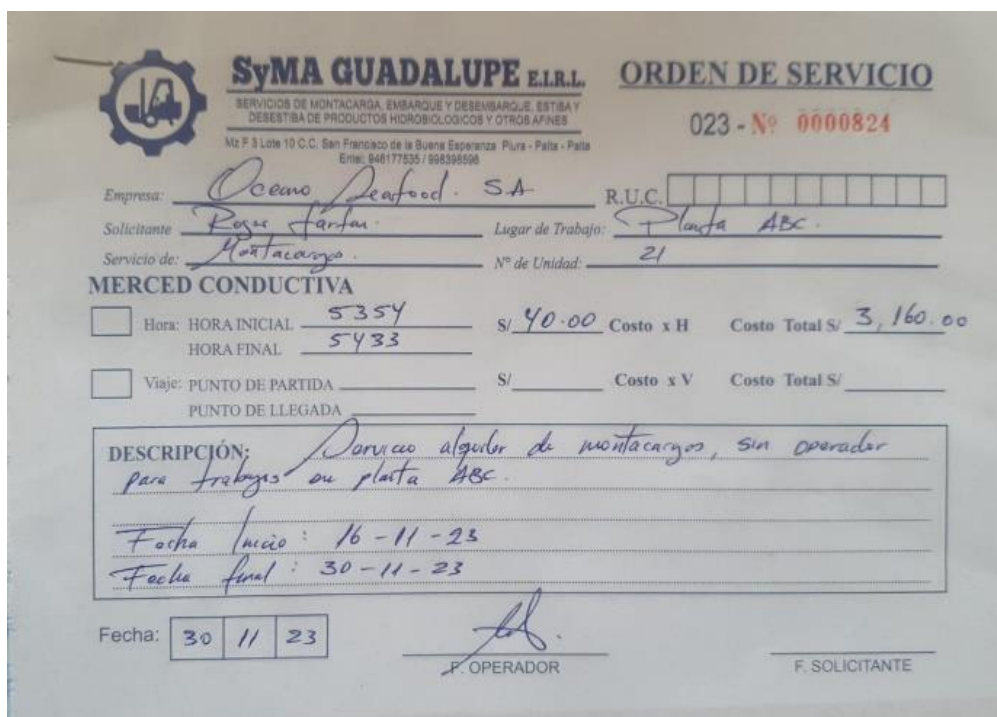 SyMA GUADALUPE E.I.R.L.
SERVICIOS DE MONTACARGA, EMBARQUE Y DESEMBARQUE, ESTIBA Y
DESESTIBA DE PRODUCTOS HIDROBIOLOGICOS Y OTROS AFINES
Mz F 3 Lote 10 C.C. San Francisco de la Buena Esperanza Piura - Paita - Paita
Entel: 946177535 / 998398598
ORDEN DE SERVICIO
023 - Nº 0000824
Empresa: Oceano Seafood. S.A R.U.C.
Solicitante Roger Farfan. Lugar de Trabajo: Planta ABC.
Servicio de: Montacargas. Nº de Unidad: 21
MERCED CONDUCTIVA
Hora: HORA INICIAL 5354 S/ 40.00 Costo x H Costo Total S/ 3,160.00
HORA FINAL 5433
Viaje: PUNTO DE PARTIDA S/ Costo x V Costo Total S/
PUNTO DE LLEGADA
DESCRIPCIÓN: Servicio alquiler de montacargas, sin operador
para trabajos en planta ABC.
Fecha Inicio: 16-11-23
Fecha final: 30-11-23
Fecha: 30 11 23
F. OPERADOR F. SOLICITANTE